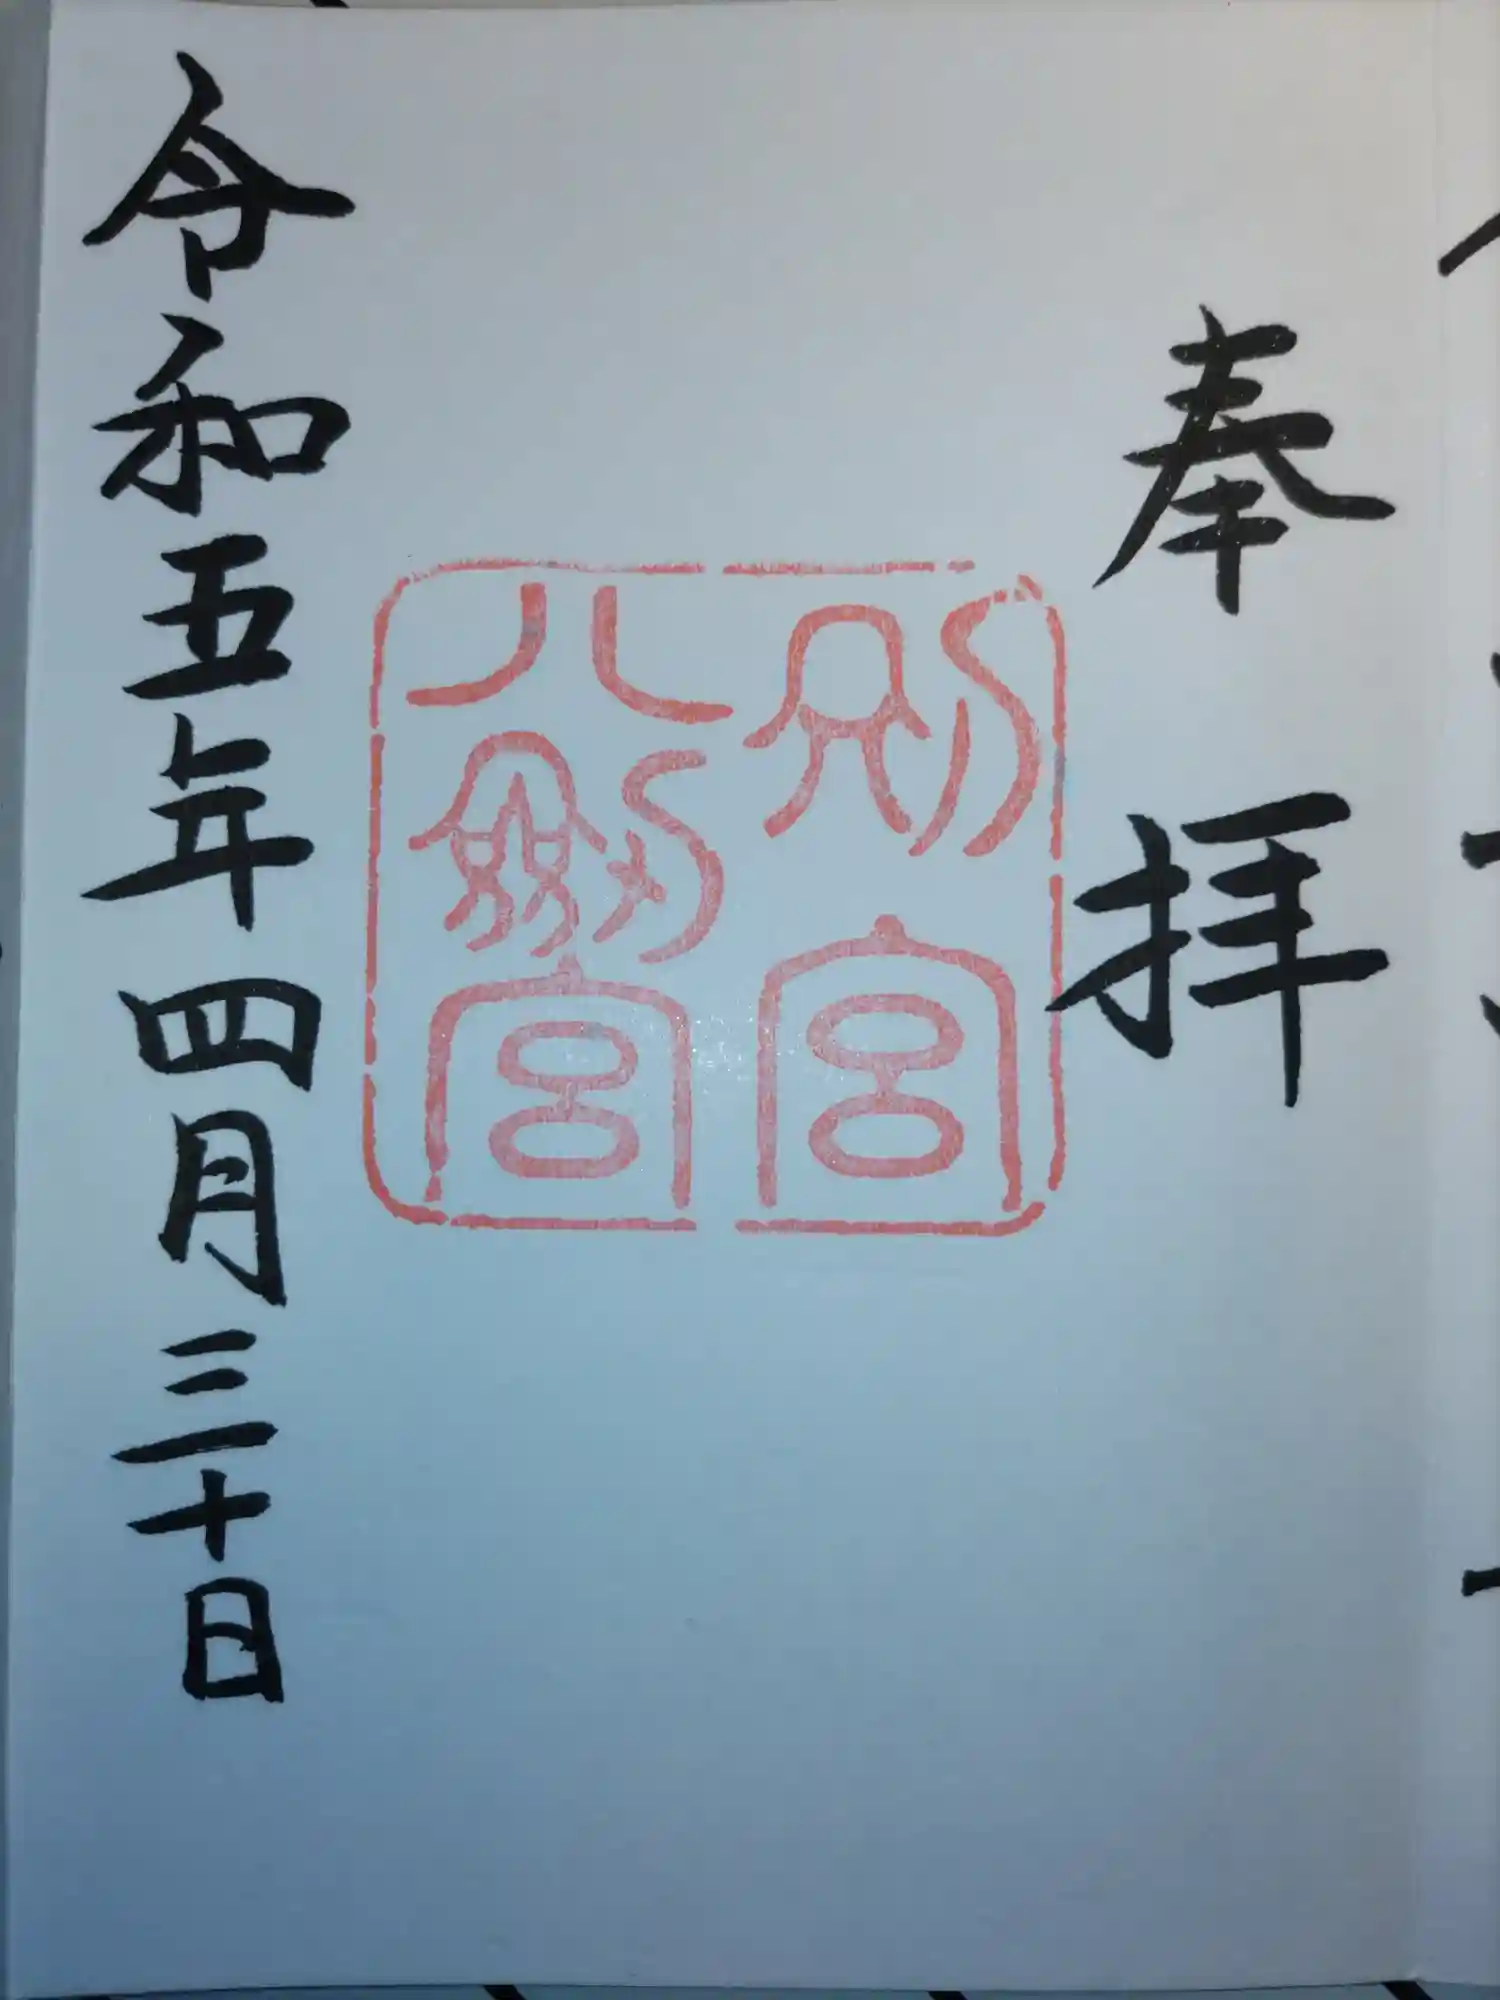 奉拝
別宮
八劔宮
令和五年四月三十日